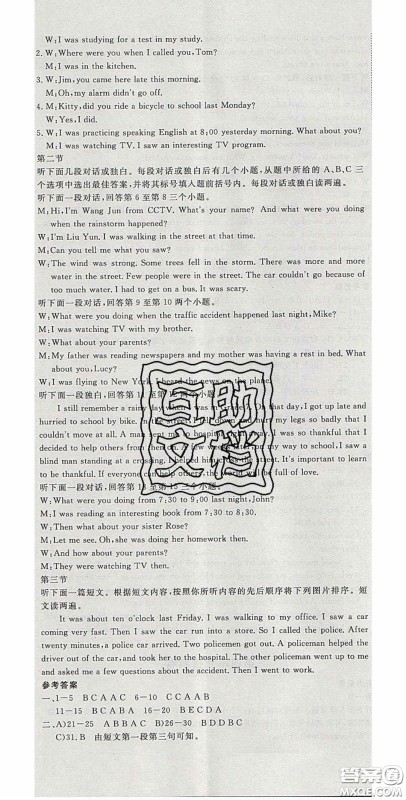 M: I was studying for a test in my study.
2. W: Where were you when I called you, Tom?
M: I was in the kitchen.
3. W: Jim, you came here late this morning.
M: Oh, my alarm didn't go off.
4. M: Kitty, did you ride a bicycle to school last Monday?
W: Yes, I did.
5. W: I was practicing speaking English at 8:00 yesterday morning. What about you?
M: I was watching TV. I saw an interesting TV program.
第二节
听下面几段对话或独白。每段对话或独白后有几个小题，从题中所给的 A、B、C 三
个选项中选出最佳答案，并将其标号填入题前括号内。每段对话或独白读两遍。
听下面一段对话，回答第 6 至第 8 三个小题。
M: Hi, I'm Wang Jun from CCTV. What's your name? And what were you doing
when the rainstorm happened?
W: I'm Liu Yun. I was walking in the street at that time.
M: Can you tell me what you saw?
W: The wind was strong. Some trees fell in the storm. There were more and more
water in the street. Few people were in the street. The car couldn't go because of
too much water. I had to get on a bus. It was terrible.
听下面一段对话，回答第 9 至第 10 两个小题。
W: What were you doing when the traffic accident happened last night, Mike?
M: I was watching TV with my brother.
W: What about your parents?
M: My father was reading newspapers and my mother was having a rest in bed. What
about you, Lucy?
W: I was flying to New York. I heard the news on the plane.
听下面一段独白，回答第 11 至第 12 两个小题。
I still remember a rainy day when I was in grade 7. On that day, I got up late and
hurried to school by bike. In the street, I fell down and hurt my legs so badly that I
couldn't move at all. A man sent me to hospital. I was so thankful that I
decided to help others from then on. Now when I was on my way to school, I saw a
blind man standing at a crossing. I helped him cross the street. It's important to learn
to be thankful. If everyone can help others, the world will be full of love.
听下面一段对话，回答第 13 至第 15 三个小题。
W: What were you doing from 7:30 to 9:00 last night, John?
M: I was reading an interesting book from 7:30 to 9:00.
W: Then what about your sister Rose?
M: Let me see. Oh, she was doing her homework then.
W: And how about your parents?
M: They were watching TV then.
第三节
听下面一篇短文。根据短文内容，按照你所听内容的先后顺序将下列图片排序。短
文读两遍。
It was about ten o'clock last Friday. I was walking to my office. I saw a car
coming very fast. Then I saw the car run into a store. So I called the police. After
twenty minutes, a police car arrived. Two policemen got out. A policeman helped the
driver out of the car, and took her to the hospital. The other policeman went up to me
and asked me a few questions about the accident. Then I went to work.
参考答案
一、1-5 BCAAC 6-10 CCACA
11-15 BACAB 16-20 CABBC
二、A)21-25 ABBAC B)26-30 BDDBC
C)31. B 由短文第一段第三句可知。
百助文档
答案圈
MXQE.COM